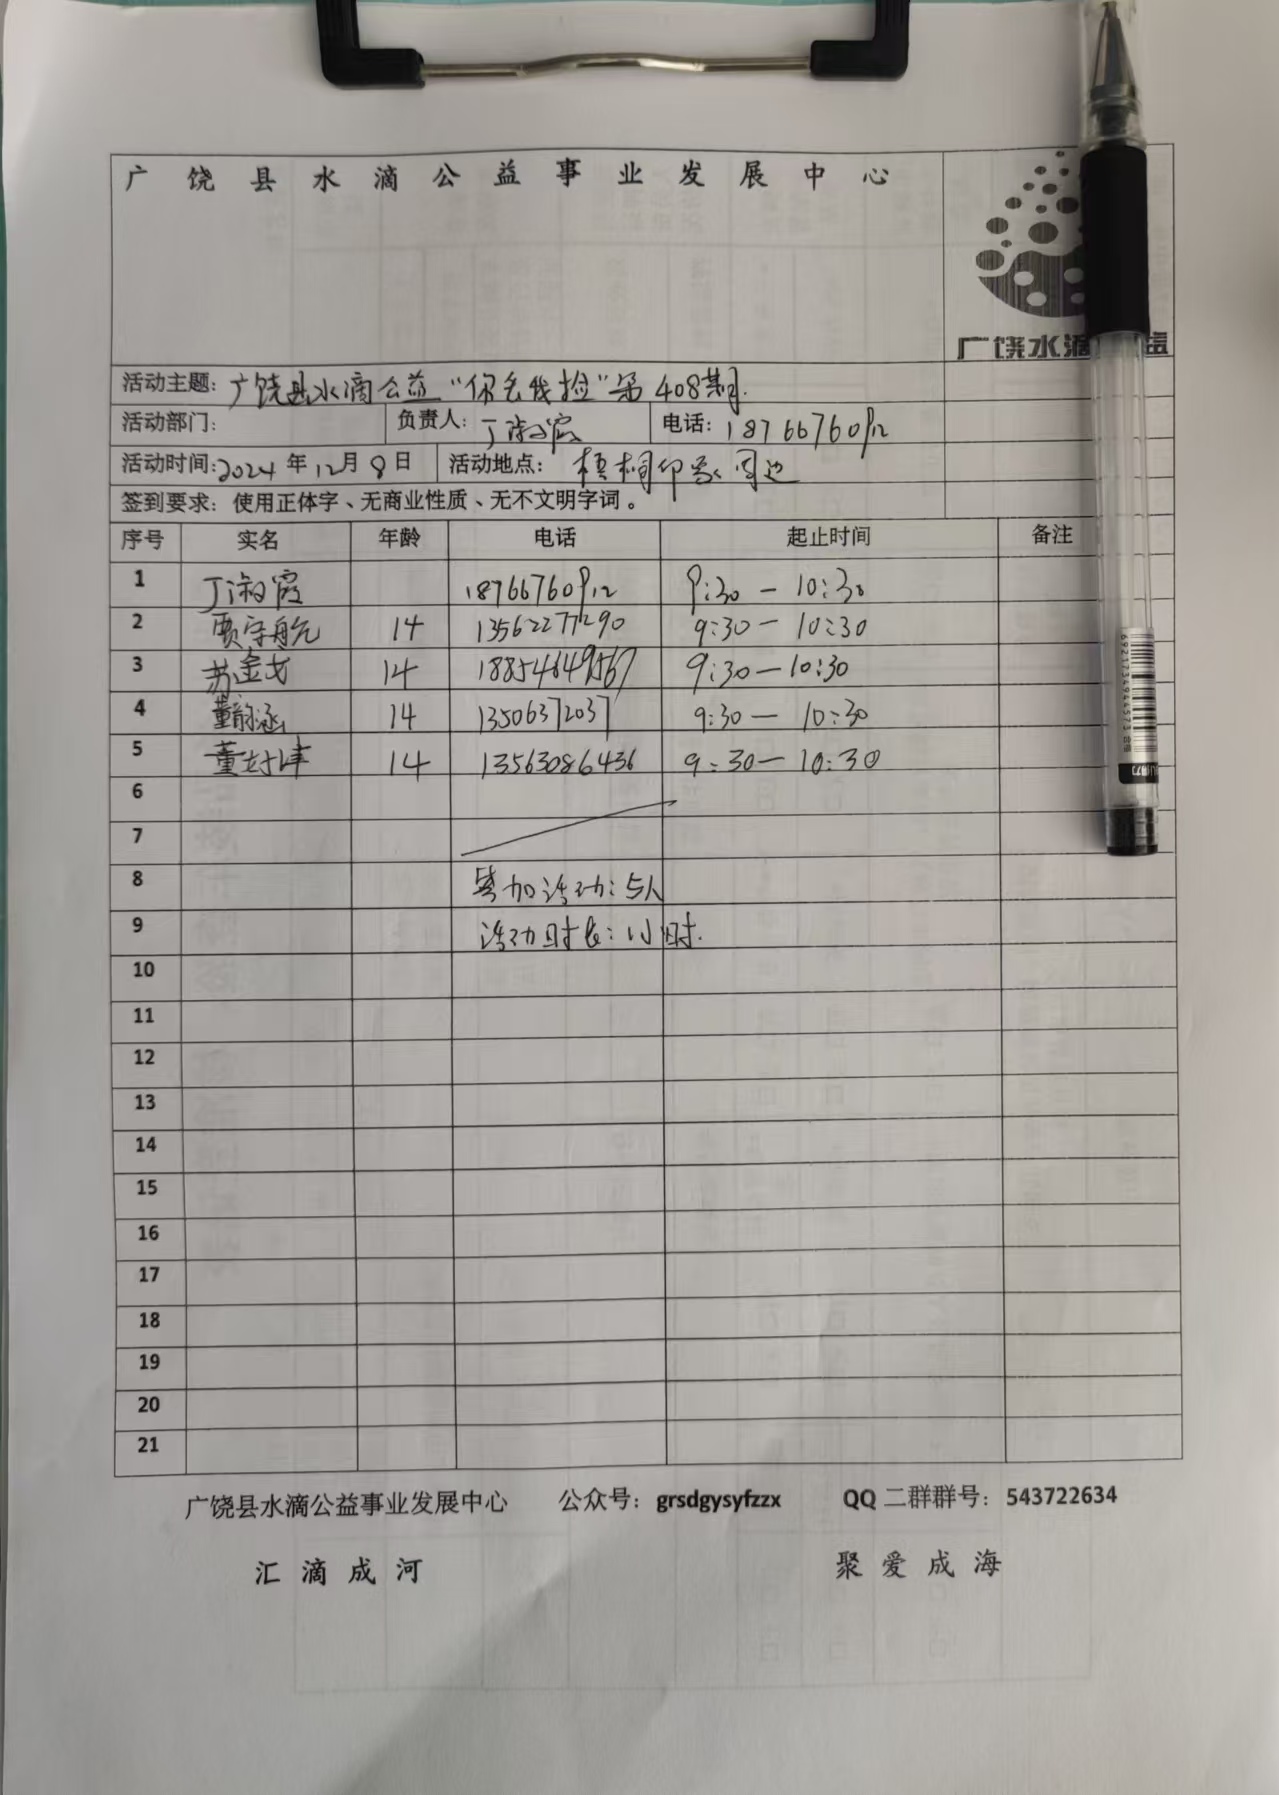 广饶县水滴公益事业发展中心
广饶水滴 益
活动主题：广饶县水滴公益“你丢我捡”第408期.
活动部门： 负责人：丁淑霞 电话：18766760912
活动时间：2024年12月8日 活动地点：梧桐印象周边
签到要求：使用正体字、无商业性质、无不文明字词。
序号 实名 年龄 电话 起止时间 备注
1 丁淑霞 18766760912 9:30 — 10:30
2 贾宇航 14 13562277290 9:30 — 10:30
3 苏金 14 18854649567 9:30 — 10:30
4 董 涵 14 13506372037 9:30 — 10:30
5 董 14 13563086436 9:30 — 10:30
6
7
8 参加活动：5人
9 活动时长：1小时.
10
11
12
13
14
15
16
17
18
19
20
21
广饶县水滴公益事业发展中心 公众号：grsdgysyfzzx QQ二群群号：543722634
汇滴成河 聚爱成海
6921734944573